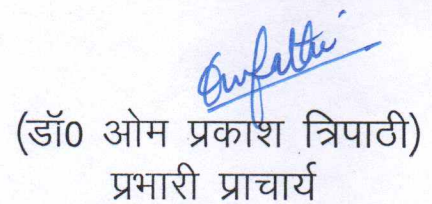 (डॉ0 ओम प्रकाश त्रिपाठी)
प्रभारी प्राचार्य